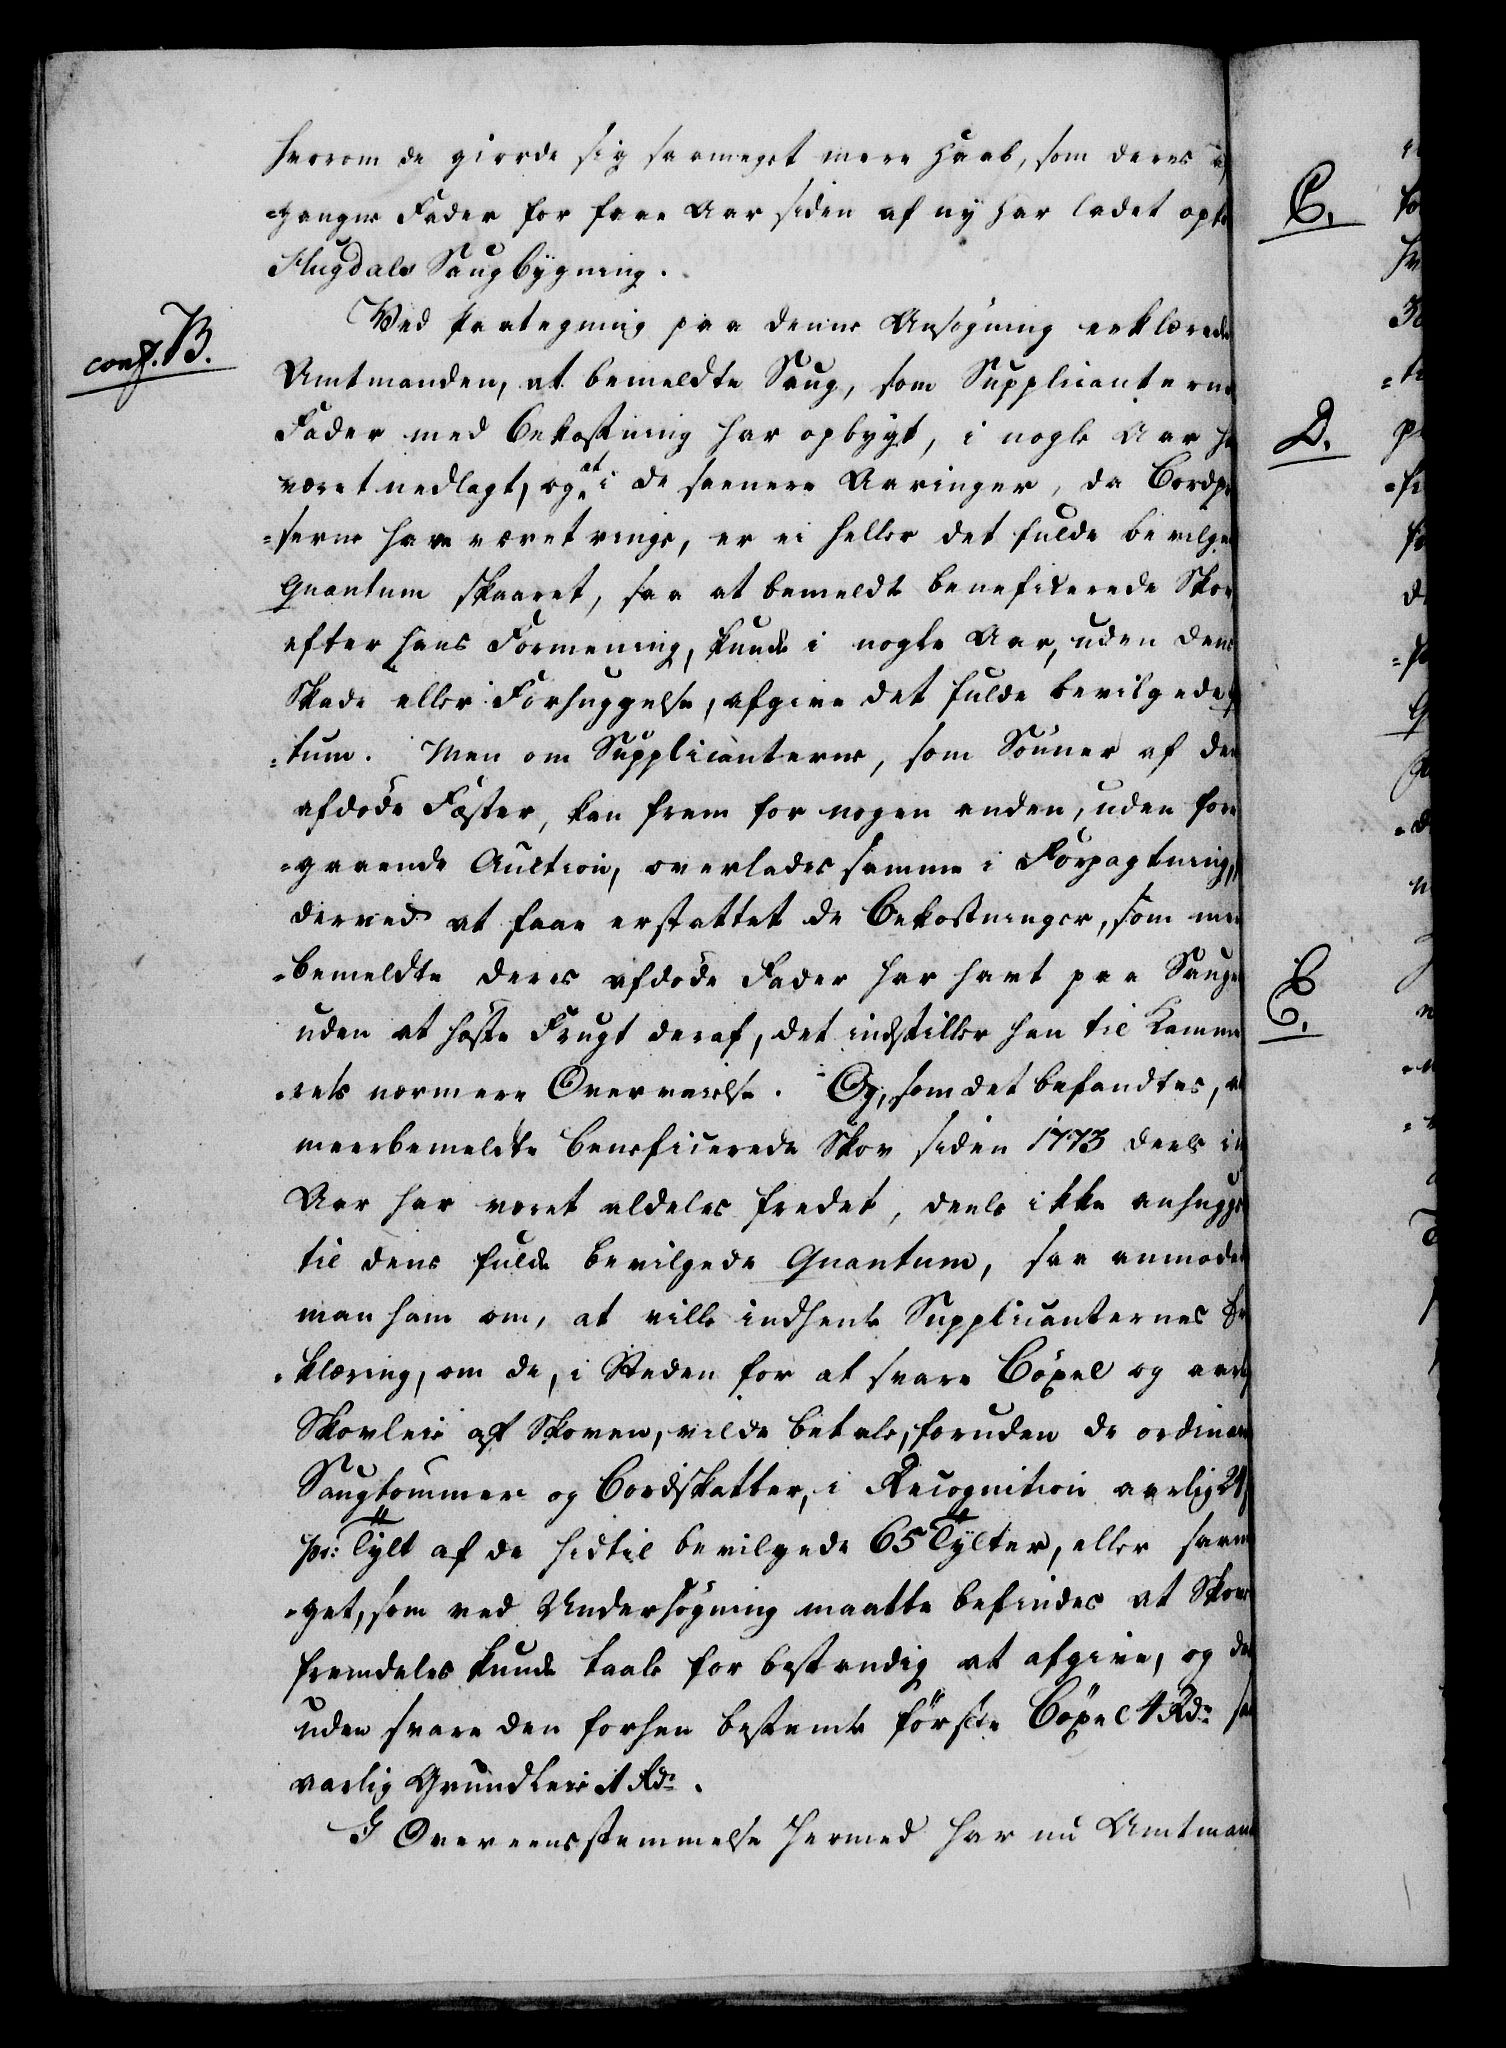 hvorom de giorde sig saameget mere Haab, som deres af
=gangne Fader for faae Aar siden af ny har ladet opte
Flugdals Saugbygning.
conf. B.
Ved Paategning paa denne Ansøgning erklærede
Amtmanden, at bemeldte Saug, som Supplicanterne
Fader med Bekostning har opbygt, i nogle Aar ha
været nedlagt, og at i de seenere Aaringer, da Bordpr
=serne have været ringe, er ei heller det fulde bevilge
Quantum skaaret, saa at bemeldte beneficerede Skov,
efter hans Formening, kunde i nogle Aar, uden dens
Skade eller Forhuggelse, afgive det fulde bevilgede
=tum. Men om Supplicanterne, som Sønner af den
afdøde Fæster, kan frem for nogen anden, uden fore
=gaaende Auction, overlades samme i Forpagtning,
derved at faae erstattet de Bekostninger, som meer
=bemeldte deres afdøde Fader har havt paa Sauge
uden at høste Frugt deraf, det indstiller han til Kamme
=rets nærmere Overveielse. Og, som det befandtes, at
meerbemeldte beneficerede Skov siden 1773 deels i
Aar har været aldeles fredet, deels ikke anhugge
til dens fulde bevilgede Quantum, saa anmodede
man ham om, at ville indhente Supplicanternes Er
=klæring, om de, i Steden for at svare Böxel og aarlig
Skovleie af Skoven, vilde betale, foruden de ordinaire
Saugtømmer og Bordskatter, i Recognition aarlig 24
pr: Tylt af de hidtil bevilgede 65 Tylter, eller saam
=get, som ved Undersøgning maatte befindes at Skov
fremdeles kunde taale for bestandig at afgive, og des
uden svare den forhen bestemte första Böxel 4 Rdr sa
aarlig Grundleie 1 Rdr.
I Overeensstemmelse hermed har nu Amtmand
C.
D.
E.